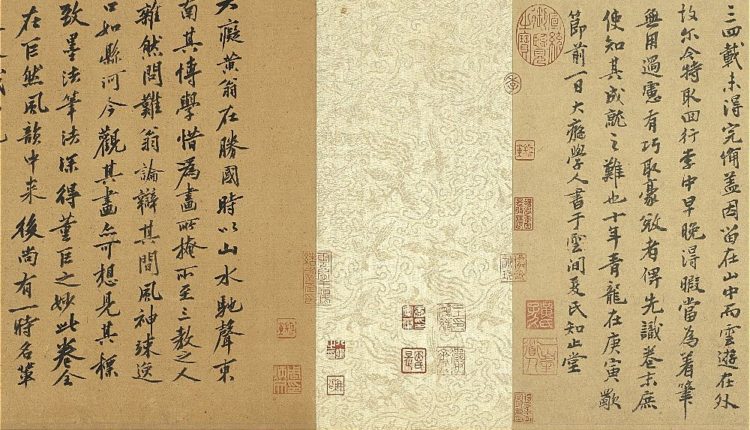 三四載未得完備蓋因留在山中而雲遊在外
故尔今特取回行李中早晚得暇當為着筆
無用過慮有巧取豪敓者俾先識卷末庶
使知其成就之難也十年青龍在庚寅歜
節前一日大癡學人書于雲間夏氏知止堂
大癡黃翁在勝國時以山水馳聲東
南其博學惜為畫所掩所至三教之人
雜然問難翁論辯其間風神竦逸
口如縣河今觀其畫亦可想見其標
致墨法筆法深得董巨之妙此卷全
在巨然風韻中来後尚有一時名筆